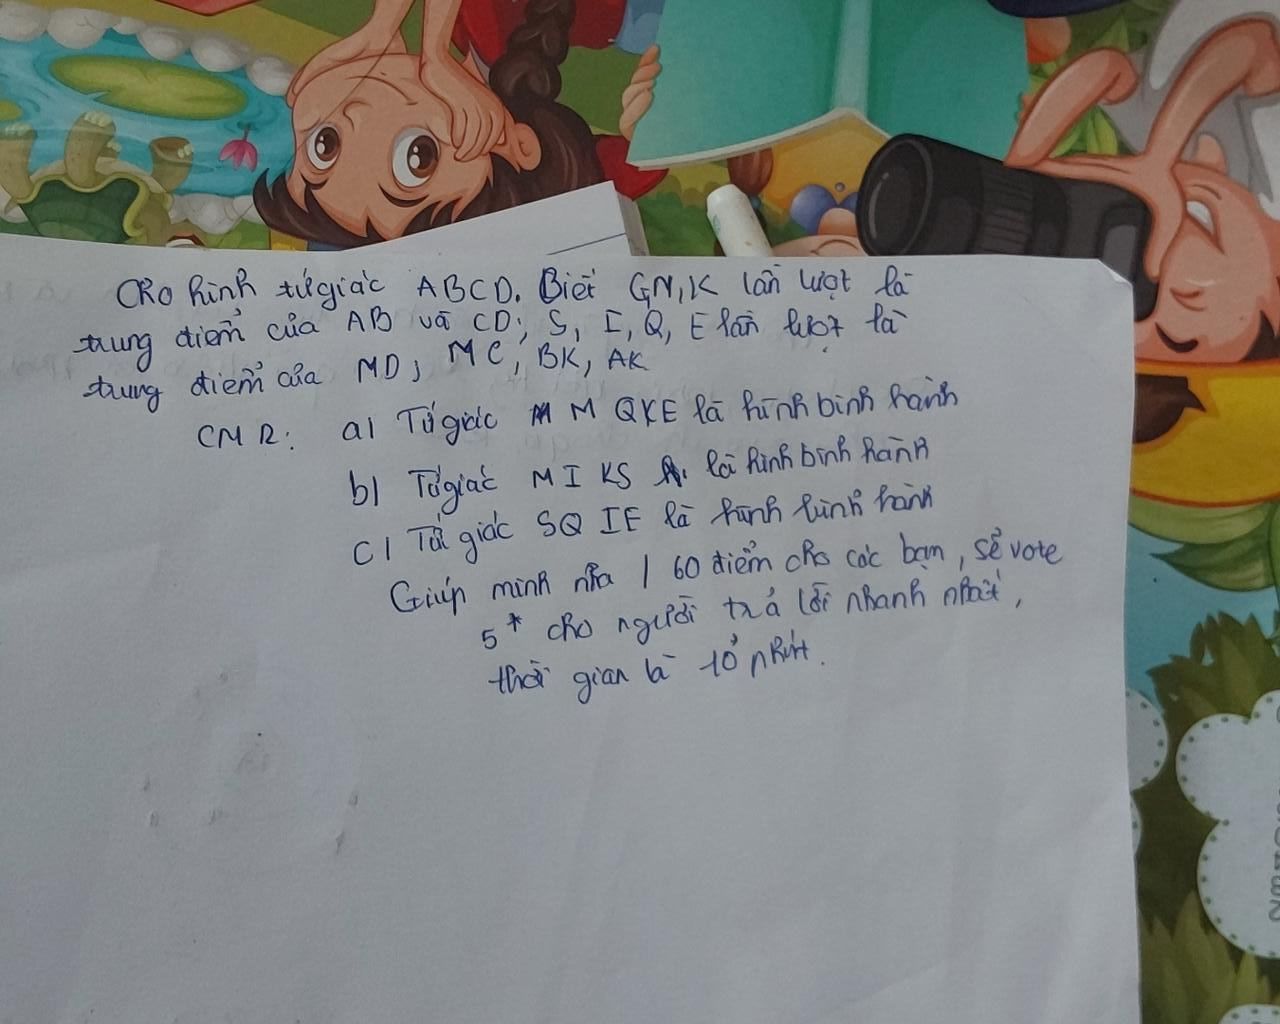 Cho hình tứ giác ABCD. Biết GN,K lần lượt là
trung điểm của AB và CD; S, I, Q, E lần lượt là
trung điểm của MD; MC; BK, AK
CMR: a) Tứ giác M QKE là hình bình hành
b) Tứ giác MIKS là hình bình hành
c) Tứ giác SQIE là hình bình hành
Giúp mình nha / 60 điểm cho các bạn, sẽ vote
5* cho người trả lời nhanh nhất,
thời gian là 10 phút.